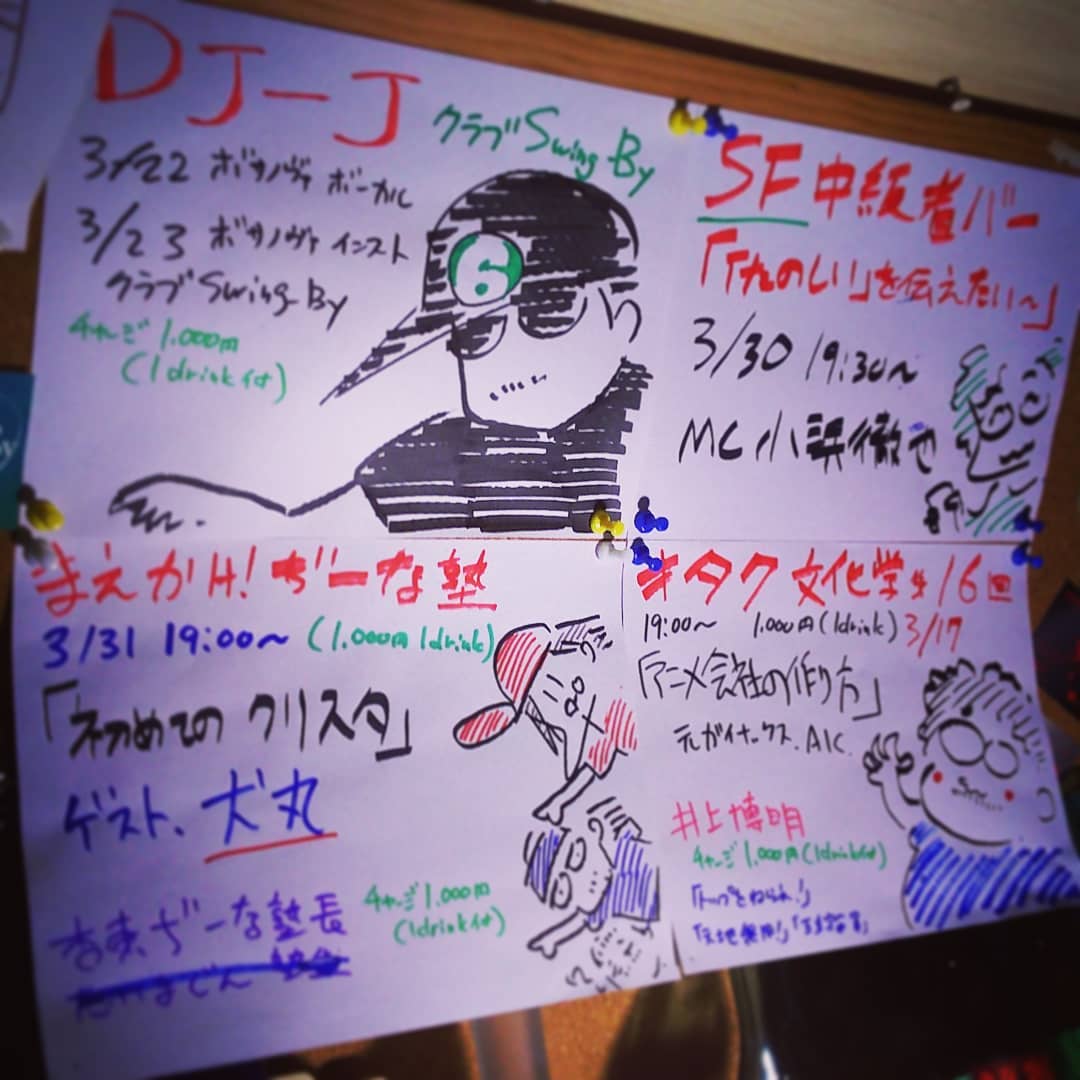 DJ-J
クラブ Swing By
3/22 ボサノヴァ ボーカル
3/23 ボサノヴァ インスト
クラブ Swing By
チャージ 1,000円
(1drink付)
6
SF中級者バー
「「たのしい」を伝えたい〜」
3/30 19:30〜
MC 小浜徹也
まえカH!ぢーな塾
3/31 19:00〜 (1,000円 1drink)
「初めての クリスタ」
ゲスト、犬丸
ぢーな塾長
チャージ 1,000円
(1drink付)
オタク文化学 16回
19:00〜 1,000円(1drink) 3/17
「アニメ会社の作り方」
元ガイナックス、AIC
井上博明
チャージ 1,000円(1drink付)
「トップをねらえ!」